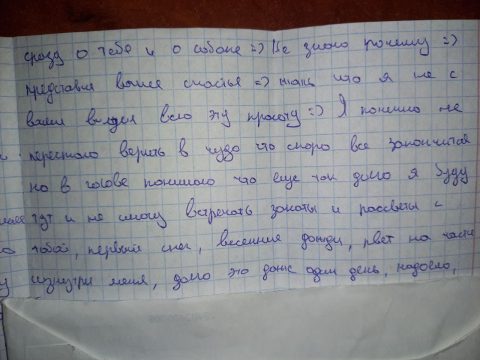 сразу о тебе и о собаке =) Не знаю почему =)
представил ваше счастье =) жаль что я не с
вами видел всю эту красоту =) Я конечно не
перестаю верить в чудо что скоро все закончится
но в голове понимаю что еще так долго я буду
тут и не смогу встречать закаты и рассветы с
тобой, первый снег, весенние дожди, рвет на части
изнутри меня, долго это даже один день, надоело,